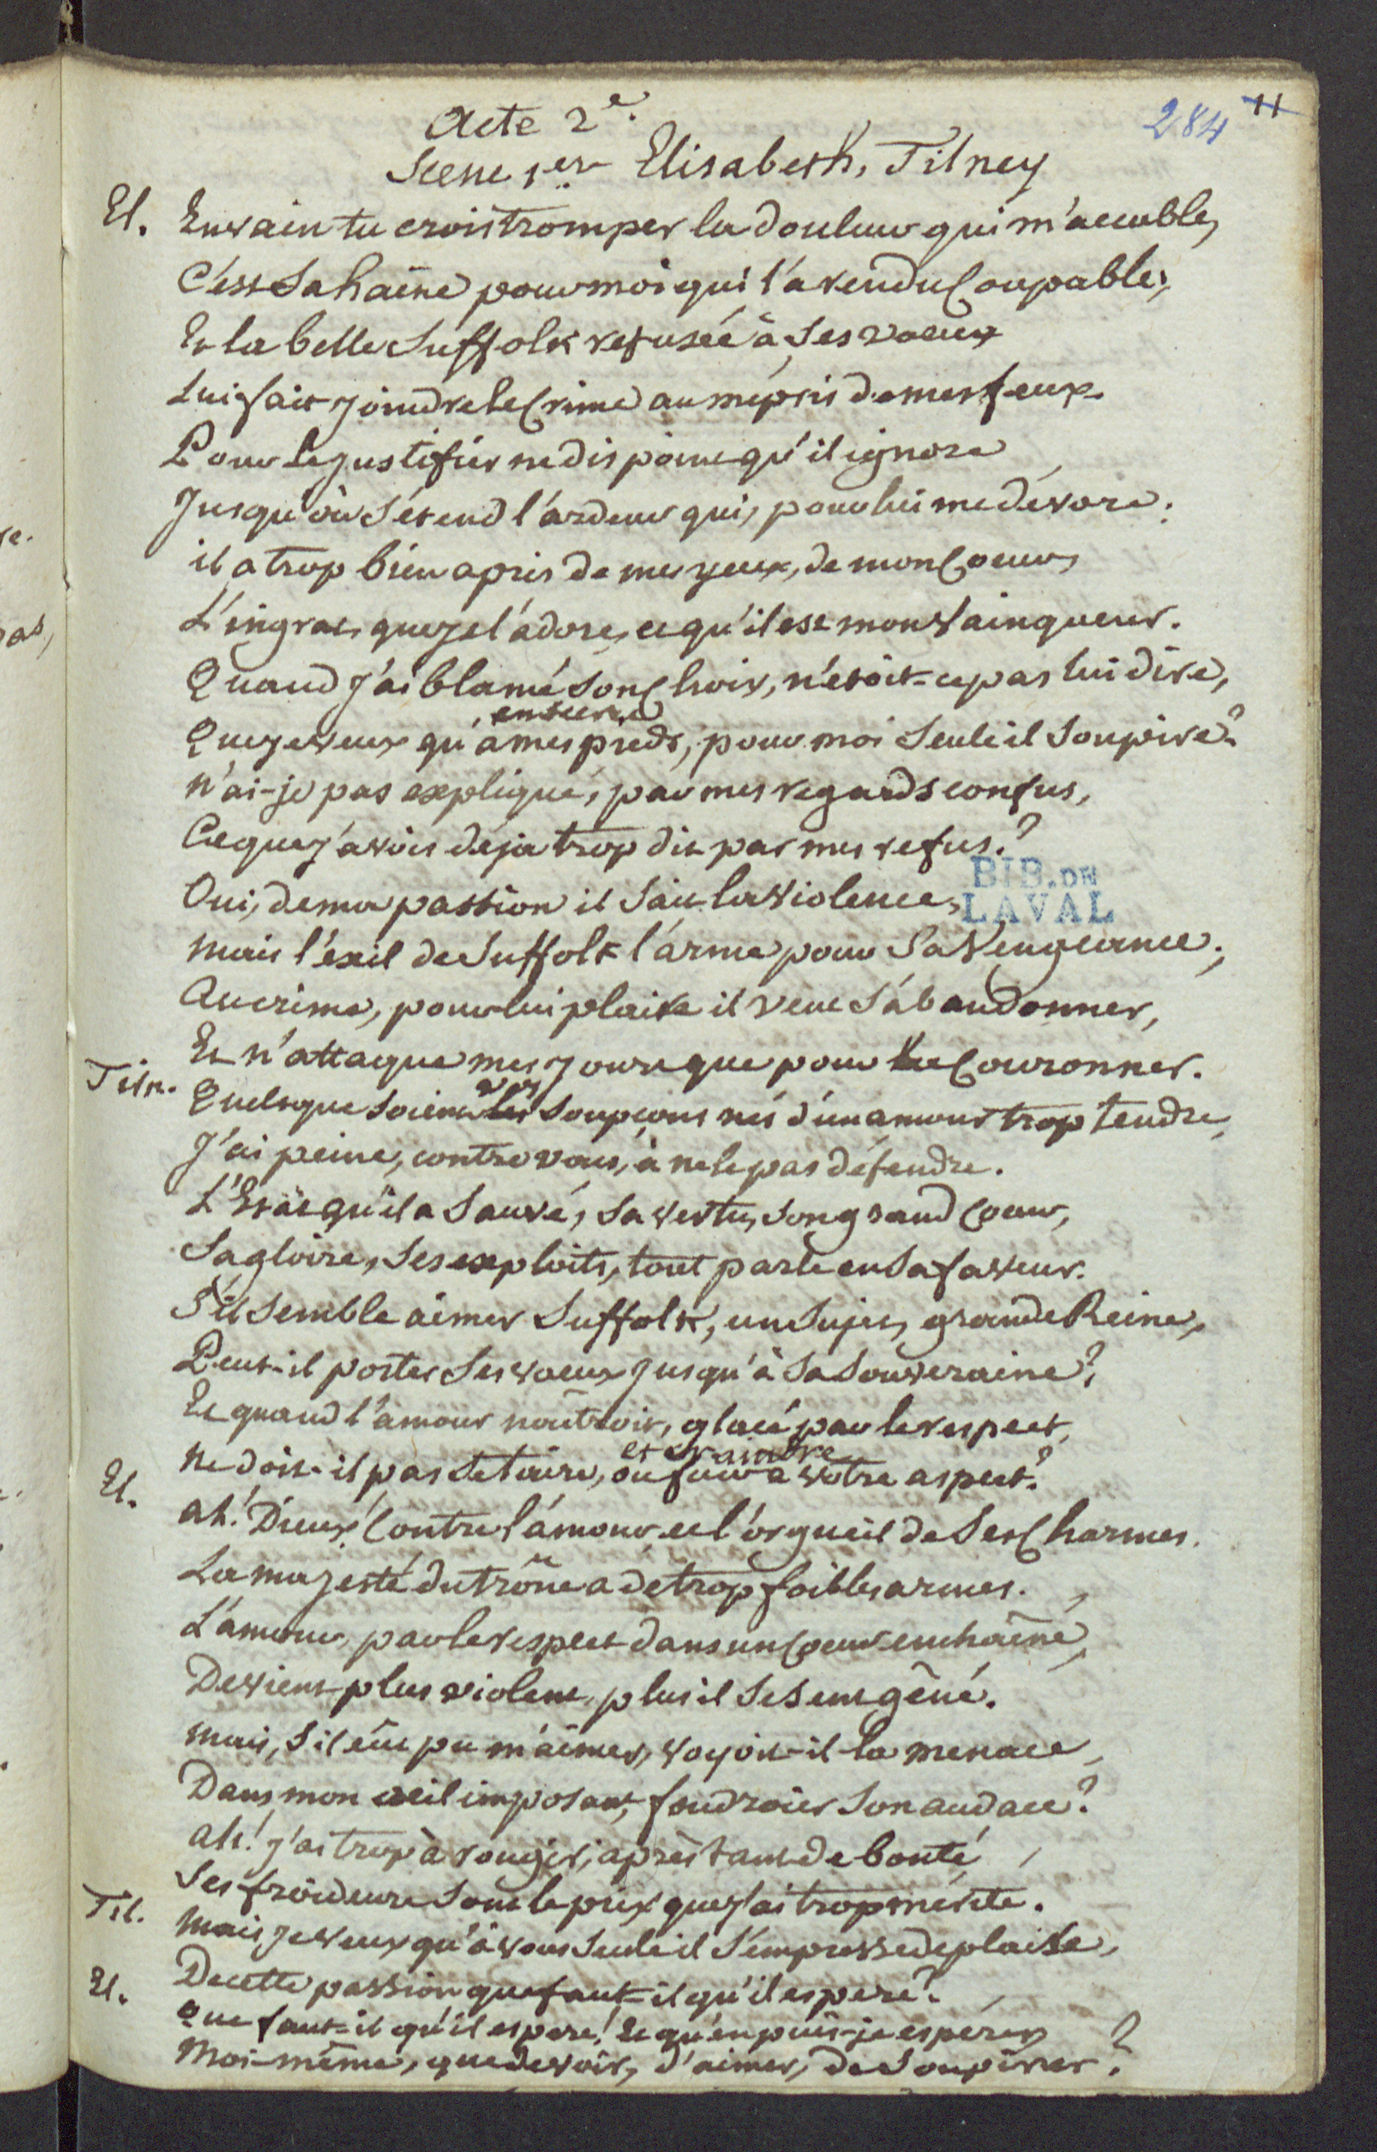 284 11
Acte 2e.
Scene 1er Elisabeth, Tilney
El. Envain tu crois tromper la douleur qui m'accable,
C'est sa haine pour moi qui l'a rendu Coupable;
Et la belle Suffolk refusée à ses voeux
Lui fait joindre le Crime au mépris de mes feux.
Pour le justifier ne dis point qu'il ignore
Jusqu'où s'étend l'ardeur qui, pour lui me dévore.
il a trop bien apris de mes yeux, de mon Coeur,
L'ingrat, que je l'adore, et qu'il est mon vainqueur.
Quand j'ai blamé son Choix, n'étoit-ce pas lui dire,
encore
Que je veux qu'à mes pieds, pour moi seule il soupire?
n'ai-je pas expliqué, par mes regards confus,
Ce que j'avois déja trop dit par mes refus?
BIB. DE
LAVAL
Oui, de ma passion il sait la violence,
mais l'éxil de Suffolk l'arme pour sa vengeance;
Au crime, pour lui plaire il veut s'abandonner,
Et n'attaque mes jours que pour la Couronner.
ces
Tiln. Quelsque soient les soupçons nés d'un amour trop tendre,
J'ai peine, contre vous, à ne le pas défendre.
L'Etat qu'il a sauvé, sa vertu, son grand Coeur,
Sa gloire, ses exploits, tout parle en sa faveur.
S'il semble aimer Suffolk, un sujet, grande Reine,
Peut-il porter ses voeux jusqu'à sa souveraine?
Et quand l'amour naîtroit, glacé par le respect,
et craindre
ne doit-il pas se taire, ou fuir à votre aspect?
El. ah! Dieux! Contre l'amour et l'orgueil de ses Charmes.
La majesté du trône a de trop foibles armes.
L'amour, par le respect dans un Coeur enchaîné,
Devient plus violent, plus il se sent gêné.
mais, s'il eût pu m'aimer, voyoit-il la menace,
Dans mon oeil imposant, foudroier son audace?
ah! j'ai trop à rougir, après tant de bonté,
Ses froideurs sont le prix que j'ai trop mérité.
Til. mais je veux qu'à vous seule il s'empresse de plaire,
De cette passion que faut-il qu'il espere?
El. Que faut-il qu'il espere! Et qu'en puis-je espérer
Moi-même, que de voir, d'aimer, de soupirer?